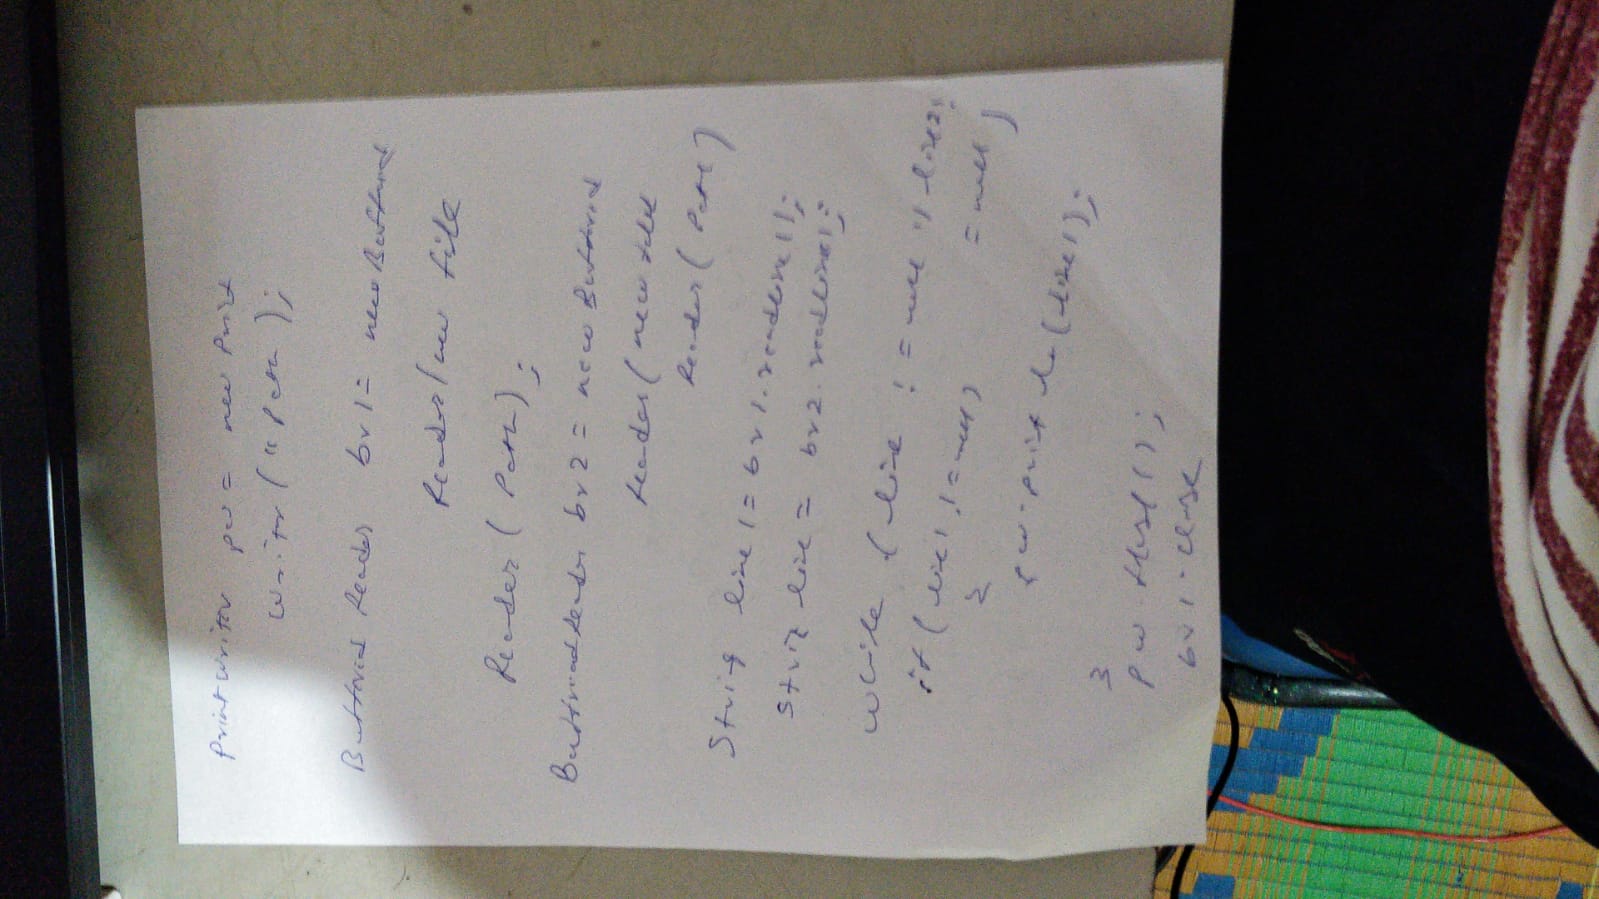 Printwriter pw = new Print
writer ("Path");
Buffered Reader br1 = new Buffered
Reader(new file
Reader (Path);
BufferedReader br2 = new Buffered
Reader (new file
Reader (Path)
String line1 = br1.readline1);
String line = br2.readline1;
while (line != null || line2
!= null)
if (line1 != null)
{
pw.println (line1);
}
pw.flush();
br1.close